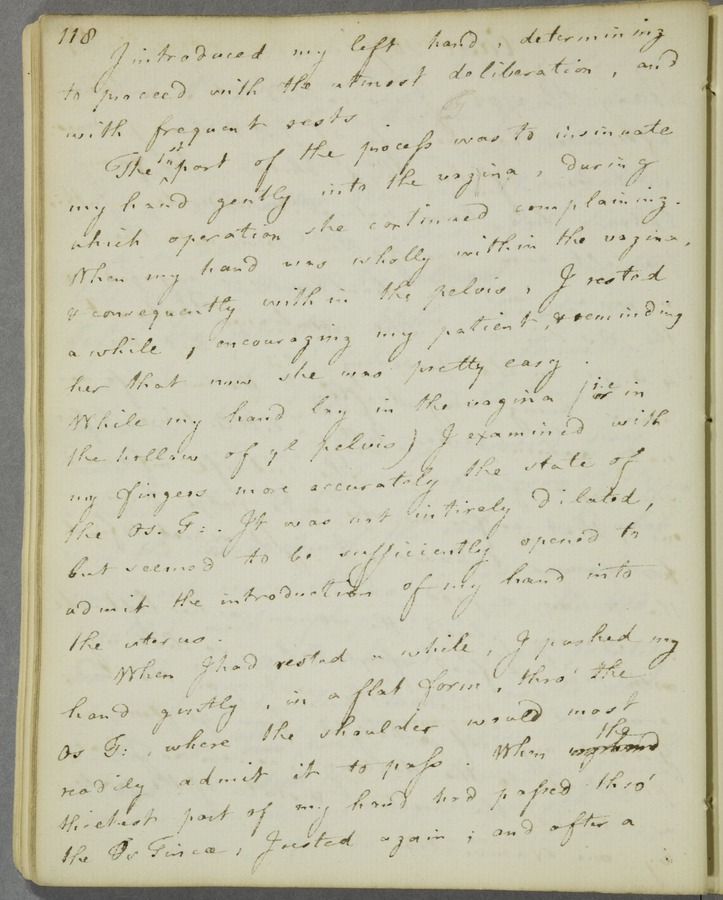 118
I introduced my left hand, determining
to proceed with the utmost deliberation, and
with frequent rests
The 1st part of the process was to insinuate
my hand gently into the vagina, during
which operation she continued complaining.
When my hand was wholly within the vagina,
& consequently within the pelvis, I rested
a while, encouraging my patient, & reminding
her that now she was pretty easy.
While my hand lay in the vagina (i:e in
the hollow of ye pelvis) I examined with
my fingers more accurately the state of
the Os. T:. It was not intirely dilated,
but seemed to be sufficiently opened to
admit the introduction of my hand into
the uterus.
When I had rested a while, I pushed my
hand gently, in a flat form, thro' the
Os T:, where the shoulder would most
readily admit it to pass. When the
thickest part of my hand had passed thro'
the Os Tincæ, I rested again; and after a